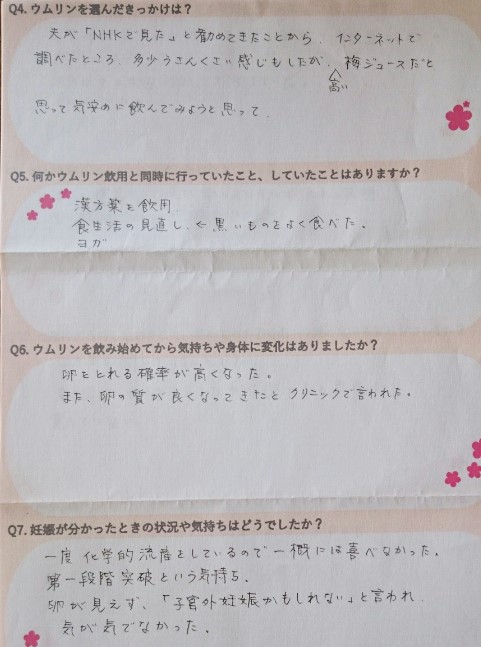 Q4. ウムリンを選んだきっかけは？
夫が「NHKで見た」と勧めてきたことから、インターネットで
調べたところ、多少うさんくさい感じもしたが、梅ジュースだと
高い
思って気安めに飲んでみようと思って。
Q5. 何かウムリン飲用と同時に行っていたこと、していたことはありますか？
漢方薬を飲用
食生活の見直し、←黒いものをよく食べた。
ヨガ
Q6. ウムリンを飲み始めてから気持ちや身体に変化はありましたか？
卵をとれる確率が高くなった。
また、卵の質が良くなってきたとクリニックで言われた。
Q7. 妊娠が分かったときの状況や気持ちはどうでしたか？
一度 化学的流産をしているので一概には喜べなかった。
第一段階突破という気持ち。
卵が見えず、「子宮外妊娠かもしれない」と言われ、
気が気でなかった。